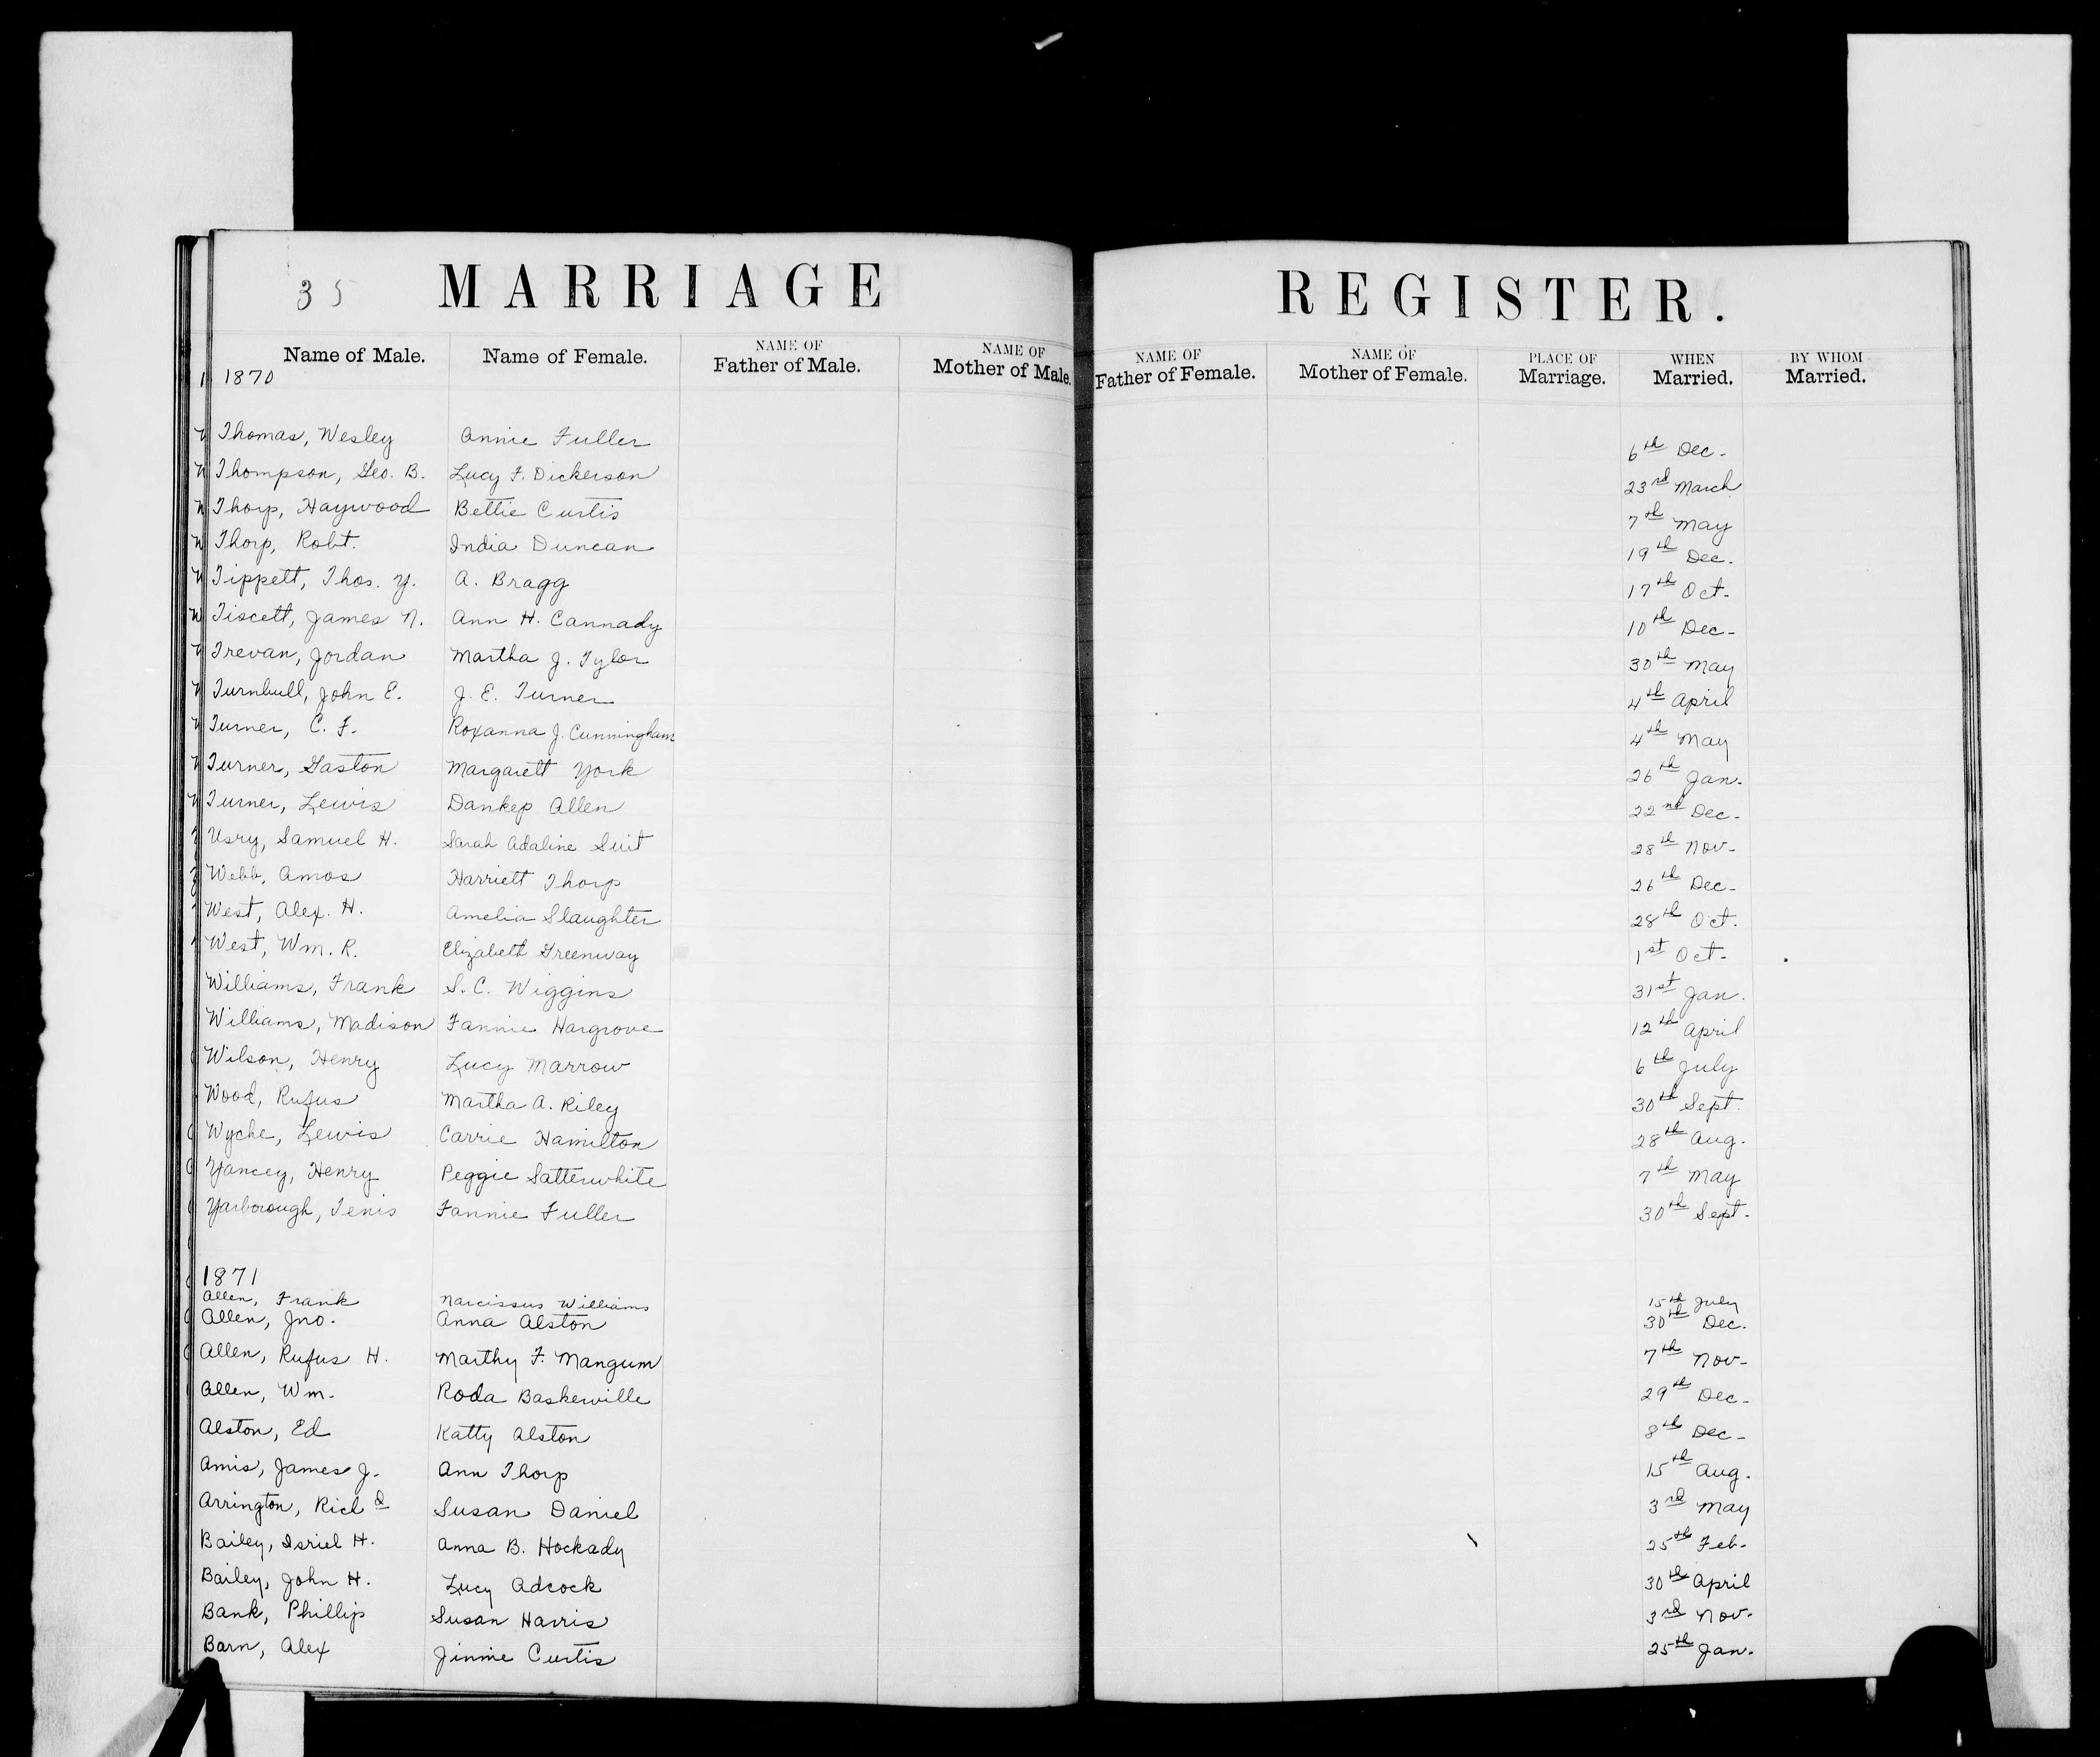 35 MARRIAGE REGISTER.
Name of Male. Name of Female. NAME OF Father of Male. NAME OF Mother of Male. NAME OF Father of Female. NAME OF Mother of Female. PLACE OF Marriage. WHEN Married. BY WHOM Married.
1870
Thomas, Wesley Annie Fuller 6th Dec-
Thompson, Geo. B. Lucy F. Dickerson 23rd March
Thorp, Haywood Bettie Curtis 7th May
Thorp, Robt. India Duncan 19th Dec.
Tippett, Thos. Y. A. Bragg 17th Oct-
Tiscett, James N. Ann H. Cannady 10th Dec-
Trevan, Jordan Martha J. Tylor 30th May
Turnbull, John E. J. E. Turner 4th April
Turner, C. F. Roxanna J. Cunningham 4th May
Turner, Gaston Margarett York 26th Jan-
Turner, Lewis Dankep Allen 22nd Dec-
Usry, Samuel H. Sarah Adaline Suit 28th Nov-
Webb, Amos Harriett Thorp 26th Dec-
West, Alex. H. Amelia Slaughter 28th Oct.
West, Wm. R. Elizabeth Greenway 1st Oct-
Williams, Frank S. C. Wiggins 31st Jan.
Williams, Madison Fannie Hargrove 12th April
Wilson, Henry Lucy Marrow 6th July
Wood, Rufus Martha A. Riley 30th Sept.
Wyche, Lewis Carrie Hamilton 28th Aug.
Yancey, Henry Peggie Satterwhite 7th May
Yarborough, Tenis Fannie Fuller 30th Sept-
1871
Allen, Frank Narcissus Williams 15th July
Allen, Jno. Anna Alston 30th Dec.
Allen, Rufus H. Marthy F. Mangum 7th Nov-
Allen, Wm. Roda Baskerville 29th Dec-
Alston, Ed Katty Alston 8th Dec-
Amis, James J. Ann Thorp 15th Aug.
Arrington, Richd Susan Daniel 3rd May
Bailey, Isriel H. Anna B. Hockady 25th Feb-
Bailey, John H. Lucy Adcock 30th April
Bank, Phillip Susan Harris 3rd Nov-
Barn, Alex Jinnie Curtis 25th Jan.